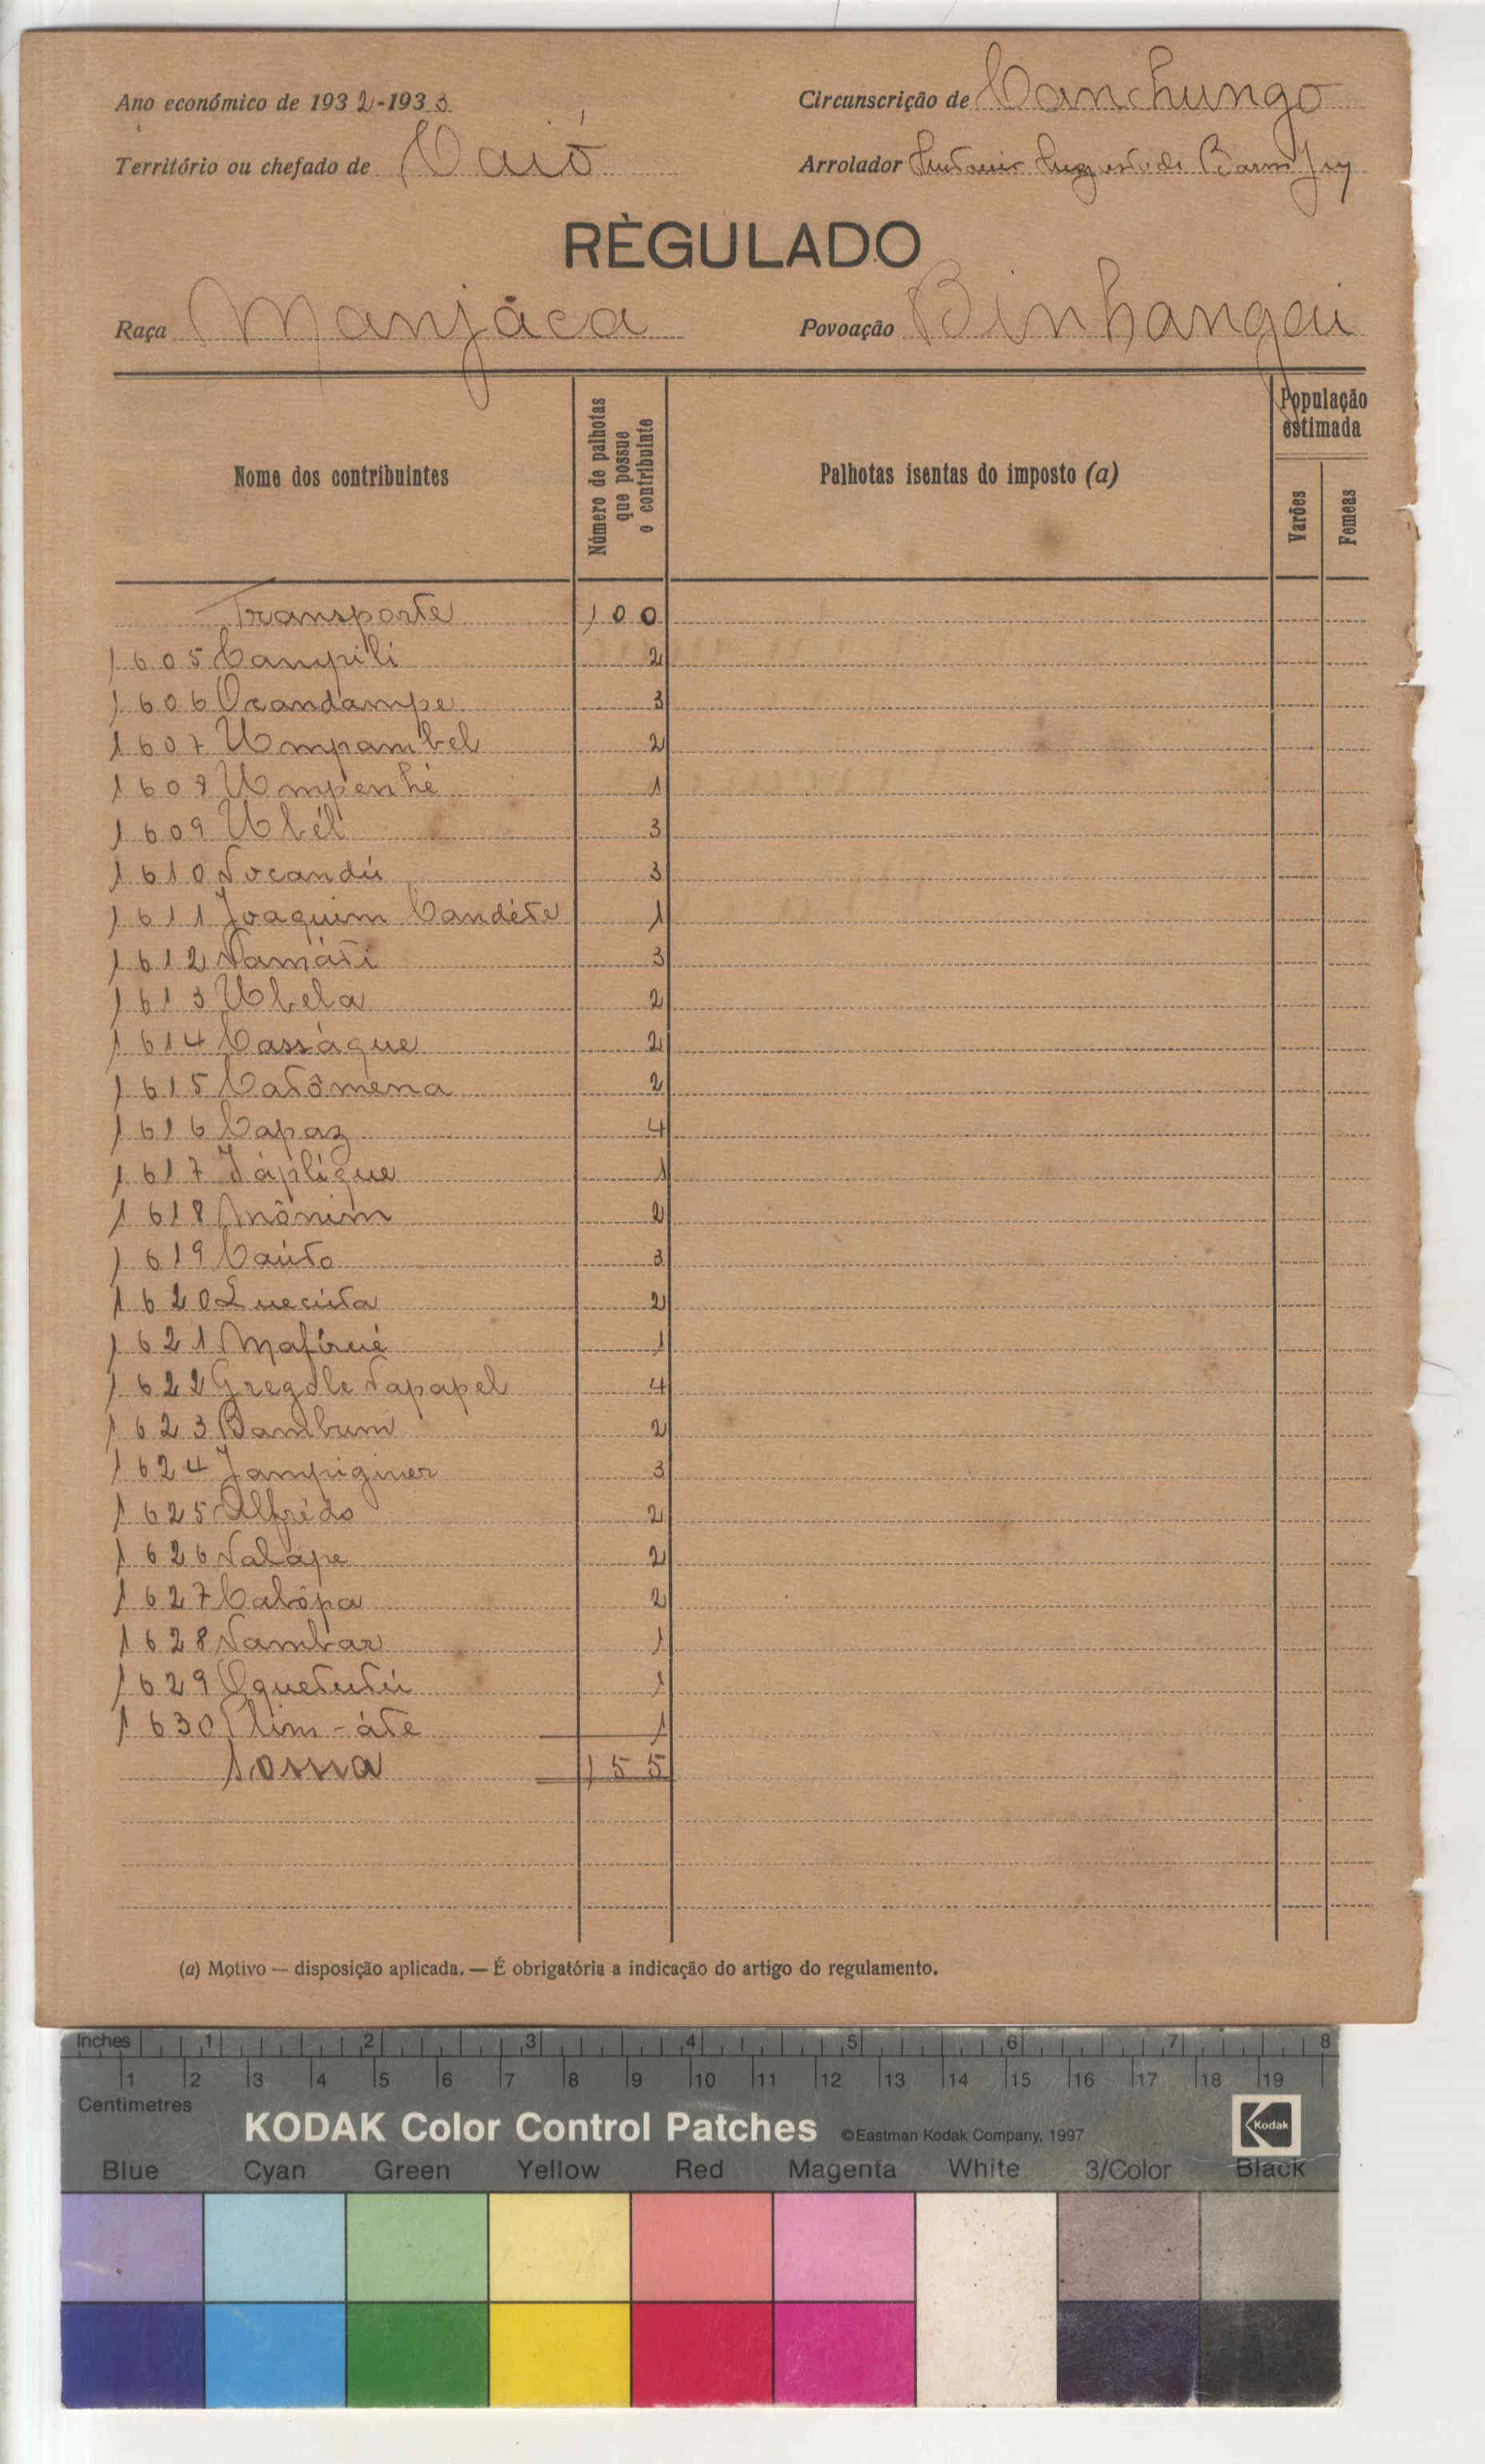 Ano económico de 1932-1933
Circunscrição de Canchungo
Território ou chefado de Caió
Arrolador Antonio Augusto de Barros Jnr
RÉGULADO
Raça Manjáca
Povoação Binhangai
Nome dos contribuintes
Número de palhotas que possue o contribuinte
Palhotas isentas do imposto (a)
População estimada
Varões
Femeas
Transporte 100
1605 Campili 2
1606 Ocandampe 3
1607 Umpambel 2
1608 Umpenhé 1
1609 Ubél 3
1610 Nocandú 3
1611 Joaquim Candéte 1
1612 Namáti 3
1613 Ubela 2
1614 Cassáque 2
1615 Catômena 2
1616 Capaz 4
1617 Jáplíque 1
1618 Anônim 2
1619 Caúto 3
1620 Quecúta 2
1621 Mafirué 1
1622 Grególe Napapel 4
1623 Bambum 2
1624 Jampiginer 3
1625 Alfrédo 2
1626 Nalápe 2
1627 Calôpa 2
1628 Nambar 1
1629 Oquetutú 1
1630 Clim-áte 1
Soma 155
(a) Motivo — disposição aplicada. — É obrigatória a indicação do artigo do regulamento.
Inches 1 2 3 4 5 6 7 8
1 2 3 4 5 6 7 8 9 10 11 12 13 14 15 16 17 18 19
Centimetres
KODAK Color Control Patches ©Eastman Kodak Company, 1997 Kodak
Blue Cyan Green Yellow Red Magenta White 3/Color Black